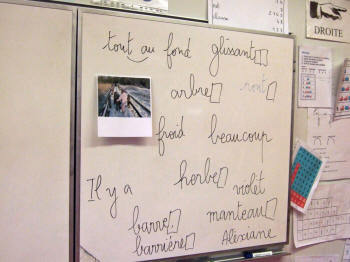 tout au fond glissant□□
arbre□ pont□
froid beaucoup
herbe□
Il y a violet
barre□ manteau□
barrière□ Alexiane
DROITE